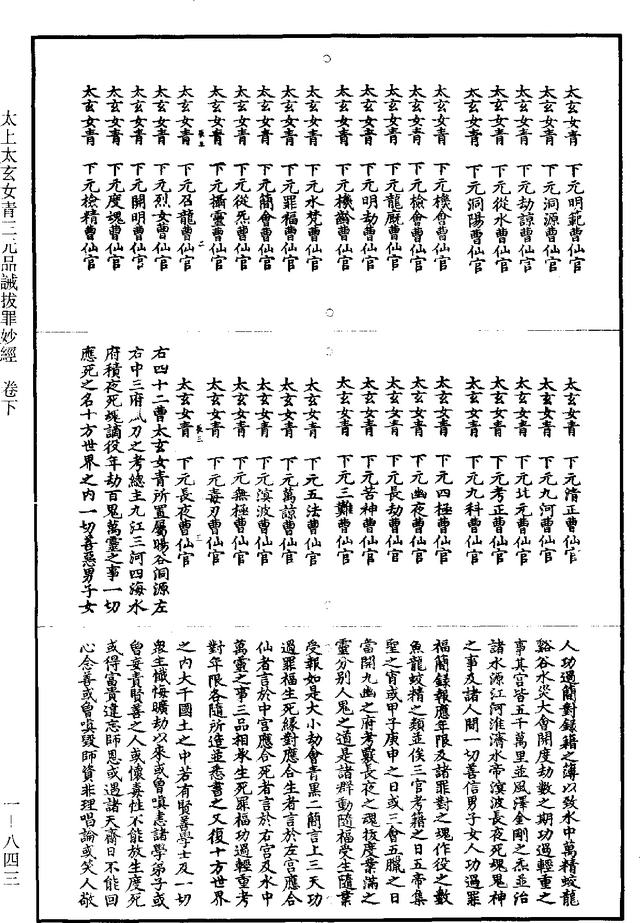 太玄女青　下元明範曹仙官
太玄女青　下元洞源曹仙官
太玄女青　下元劫諒曹仙官
太玄女青　下元從水曹仙官
太玄女青　下元洞陽曹仙官
太玄女青　下元機會曹仙官
太玄女青　下元檢會曹仙官
太玄女青　下元龍厩曹仙官
太玄女青　下元明劫曹仙官
太玄女青　下元機齡曹仙官
太玄女青　下元水梵曹仙官
太玄女青　下元罪福曹仙官
太玄女青　下元簡會曹仙官
太玄女青　下元從炁曹仙官
太玄女青　下元攝靈曹仙官
太玄女青　下元召龍曹仙官
太玄女青　下元烈女曹仙官
太玄女青　下元開明曹仙官
太玄女青　下元度魂曹仙官
太玄女青　下元檢精曹仙官
太玄女青　下元清正曹仙官
太玄女青　下元九河曹仙官
太玄女青　下元北元曹仙官
太玄女青　下元考正曹仙官
太玄女青　下元九科曹仙官
太玄女青　下元四極曹仙官
太玄女青　下元幽夜曹仙官
太玄女青　下元長劫曹仙官
太玄女青　下元苦神曹仙官
太玄女青　下元三難曹仙官
太玄女青　下元五法曹仙官
太玄女青　下元萬諒曹仙官
太玄女青　下元溟波曹仙官
太玄女青　下元無極曹仙官
太玄女青　下元毒刃曹仙官
太玄女青　下元長夜曹仙官
右四十二曹太玄女青所置屬暘谷洞源左
右中三府風刀之考總主九江三河四海水
府積夜死魂謫役年劫百鬼萬靈之事一切
應死之名十方世界之內一切善惡男子女
人功過簡對錄籍之簿以致水中萬精蛟龍
谿谷水災大會開度劫數之期功過輕重之
事其宮皆五千萬里並風澤金剛之炁並治
諸水源江河淮濟水帝溟波長夜死魂鬼神
之事及諸人間一切善信男子女人功過罪
福簡錄報應年限及諸罪對之魂作役之數
魚龍蛟精之類並俟三官考籍之日五帝集
聖之宵或甲子庚申之日或三會五臘之日
當開九幽之府考覈長夜之魂拔度業滿之
靈分別人鬼之道是諸群動隨福受生隨業
受報如是大小劫會青黑二簡言上三天功
過罪福生死緣對應合生者言於左宮應合
仙者言於中宮應合死者言於右宮及水中
萬靈之事三品相承生死罪福功過輕重考
對年限各隨所造並悉書之又復十方世界
之內大千國土之中若有賢善學士及一切
衆生懺悔曠劫以來或曾嗔恚諸學弟子或
曾妄責賢善之人或懷毒性不能放生度死
或得富貴違忘師恩或遇諸天齋日不能回
心念善或曾嗔毀師資非理唱論或笑人敬
太上太玄女青三元品誡拔罪妙經　卷下
一－八四三